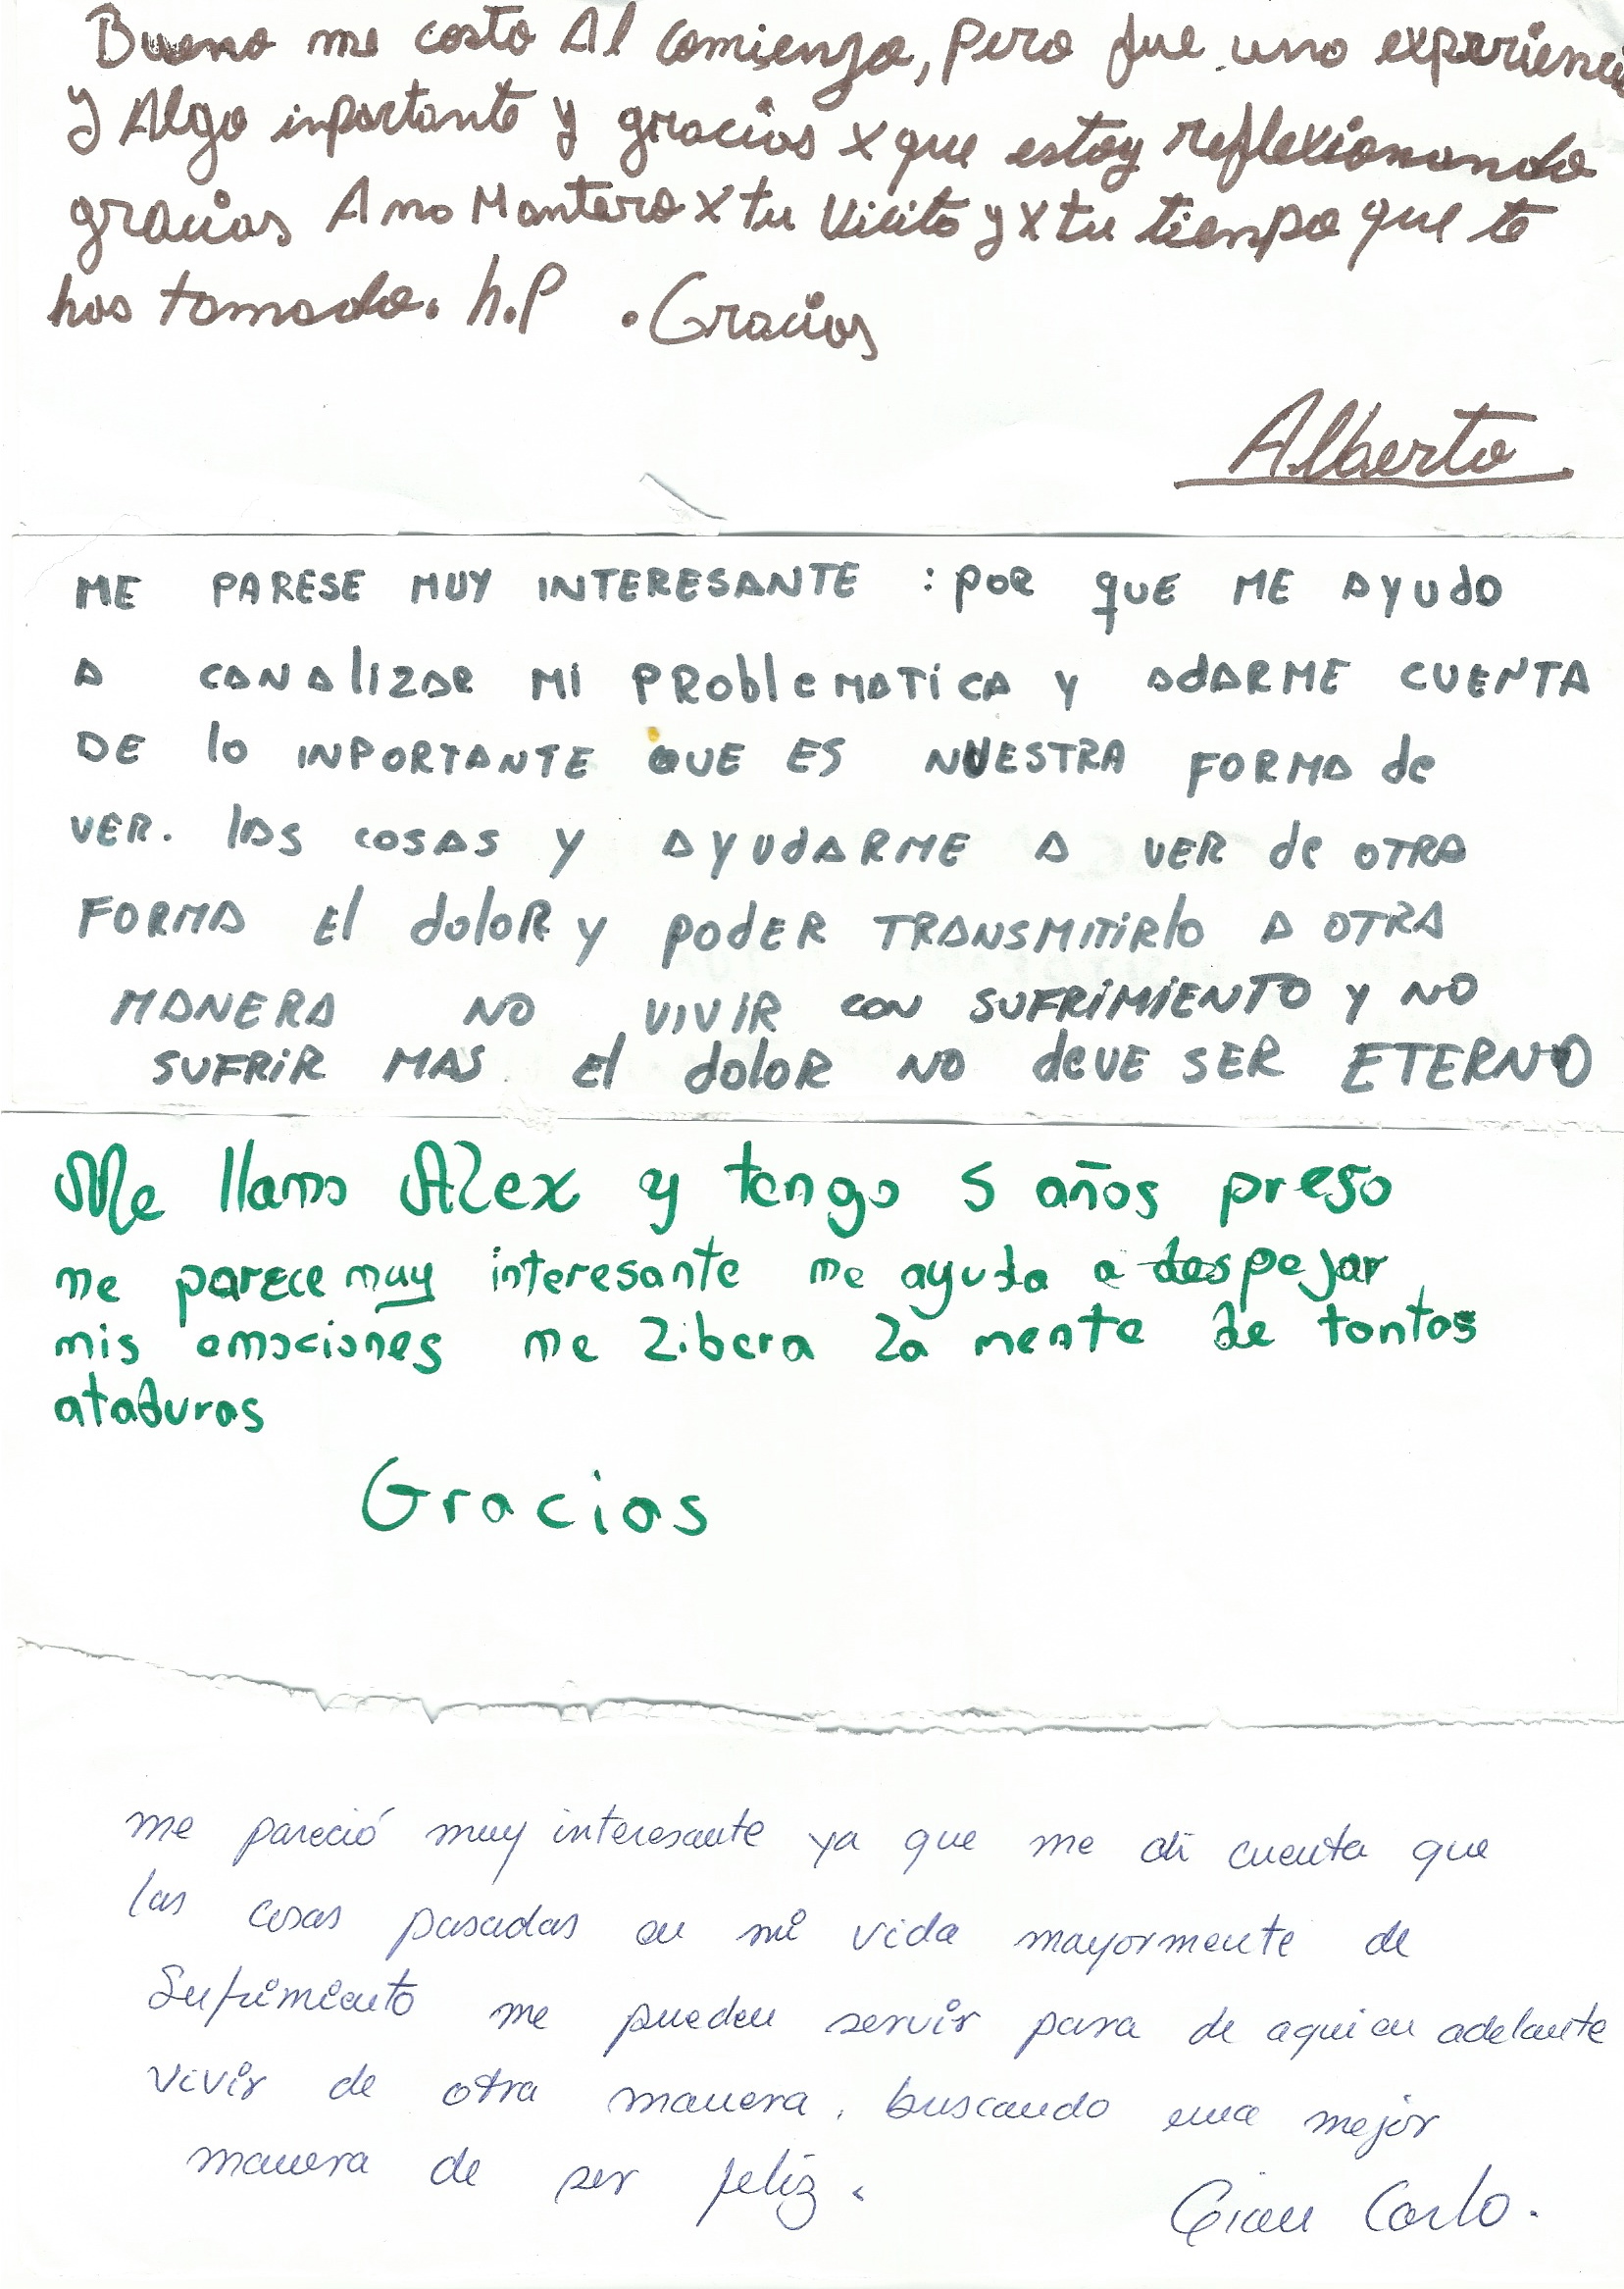 Bueno me costo Al comienzo, pero fue una experiencia
y Algo inportante y gracias x que estoy reflexionando
gracias Ana Montero x tu Vicita y x tu tienpo que te
has tomado. h.P . Gracias
Alberto
ME PARESE MUY INTERESANTE : POR QUE ME AYUdO
A CANAlIZAR MI PRoblEMATiCA Y AdARME CUENTA
DE lo INPORTANTE QUE ES NUESTRA FORMA de
VER. lAS COSAS Y AYUdARME A VER de OTRA
FORMA El dolOR y PODER TRANSMITIRlo A OTRA
MANERA NO VIVIR CON SUFRiMiENTO Y NO
SUFRiR MAS El dolOR NO deVE SER ETERNO
Me llamo Alex y tengo 5 años preso
me parece muy interesante me ayuda a despejar
mis emociones me libera la mente de tontas
ataduras
Gracias
me pareció muy interesante ya que me di cuenta que
las cosas pasadas en mi vida mayormente de
Sufrimiento me pueden servir para de aqui en adelante
vivir de otra manera, buscando una mejor
manera de ser feliz.
Gian Carlo.